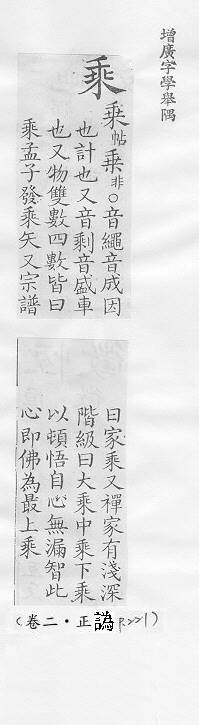 增廣字學舉隅
乘
乗帖乘非○音繩音成因
也計也又音剩音盛車
也又物雙數四數皆曰
乘孟子發乘矢又宗譜
曰家乘又禪家有淺深
階級曰大乘中乘下乘
以頓悟自心無漏智此
心即佛為最上乘
(卷二·正譌P.221)